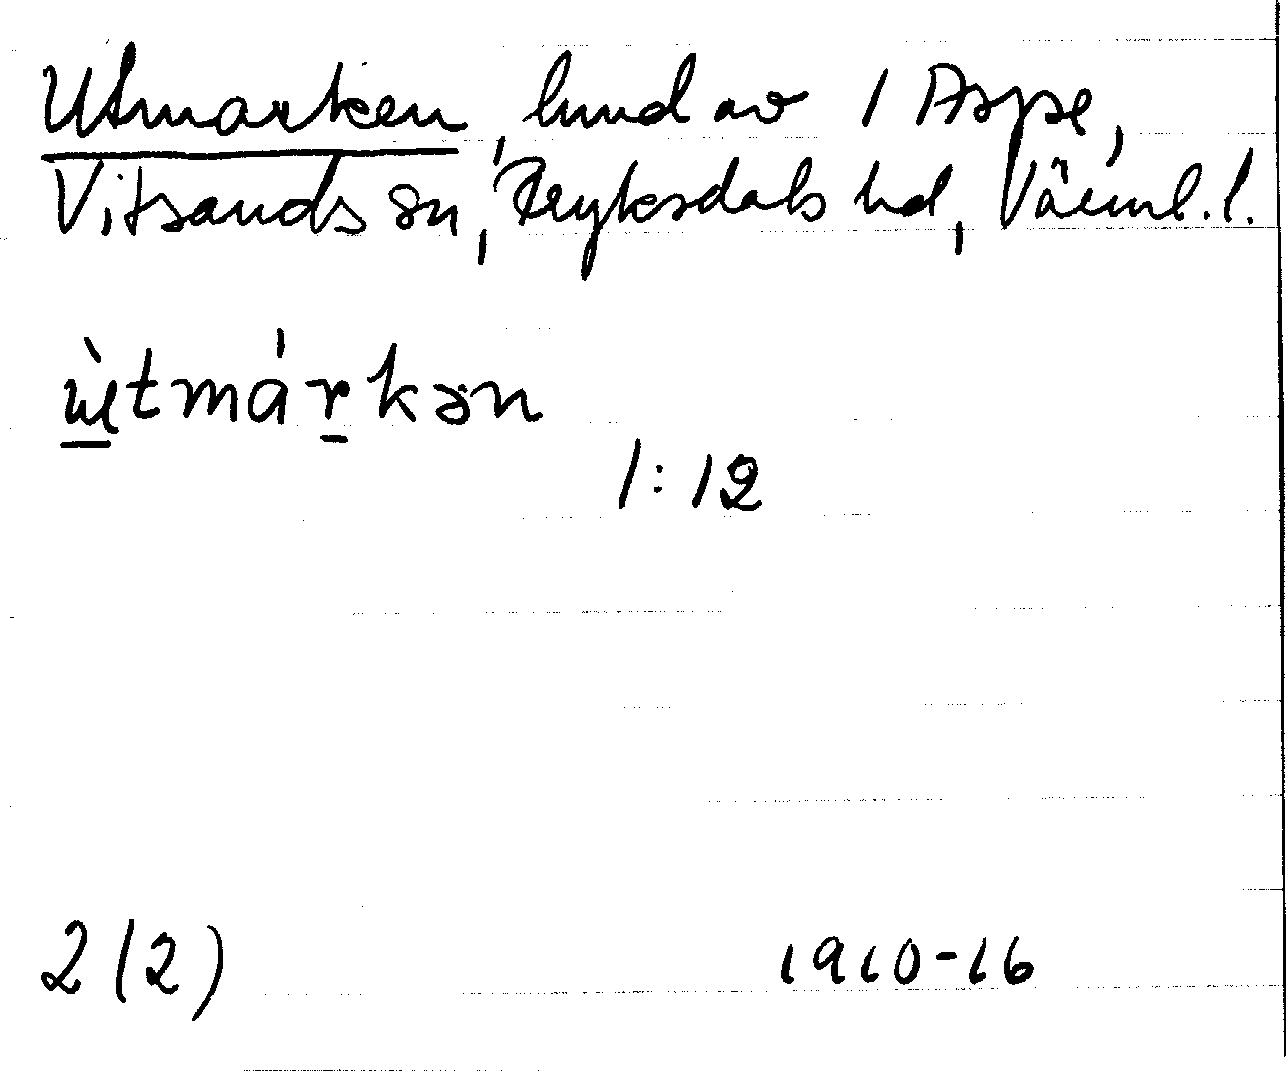 Utmarken, lund av 1 Aspe,
Vitsands sn, Fryksdals hd, Värml. l.
ù̱tmár̠kən
1:12
2(2)
1910-16